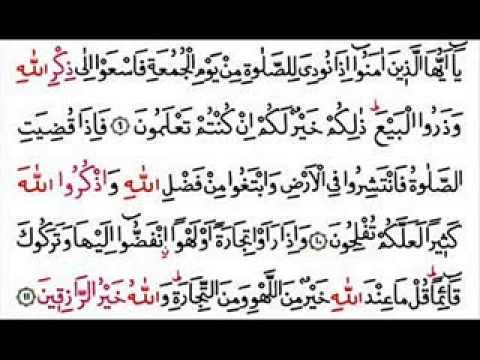 يَٓا اَيُّهَا الَّذ۪ينَ اٰمَنُٓوا اِذَا نُودِيَ لِلصَّلٰوةِ مِنْ يَوْمِ الْجُمُعَةِ فَاسْعَوْا اِلٰى ذِكْرِ اللّٰهِ
وَذَرُوا الْبَيْعَۜ ذٰلِكُمْ خَيْرٌ لَكُمْ اِنْ كُنْتُمْ تَعْلَمُونَ ﴿٩﴾ فَاِذَا قُضِيَتِ
الصَّلٰوةُ فَانْتَشِرُوا فِي الْاَرْضِ وَابْتَغُوا مِنْ فَضْلِ اللّٰهِ وَاذْكُرُوا اللّٰهَ
كَث۪يرًا لَعَلَّكُمْ تُفْلِحُونَ ﴿١٠﴾ وَاِذَا رَاَوْا تِجَارَةً اَوْ لَهْوًاۨ انْفَضُّٓوا اِلَيْهَا وَتَرَكُوكَ
قَٓائِمًاۜ قُلْ مَا عِنْدَ اللّٰهِ خَيْرٌ مِنَ اللَّهْوِ وَمِنَ التِّجَارَةِۜ وَاللّٰهُ خَيْرُ الرَّازِق۪ينَ ﴿١١﴾